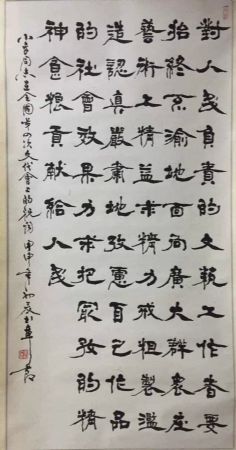 對人民負責的文藝工作者要
始終不渝地面向廣大群衆在
藝術上精益求精力戒粗製濫
造認真嚴肅地攷慮自己作品
的社會效果力求把最好的精
神食粮貢獻給人民
小平同志在全國第四次文代會上的祝詞 甲申年初夏於